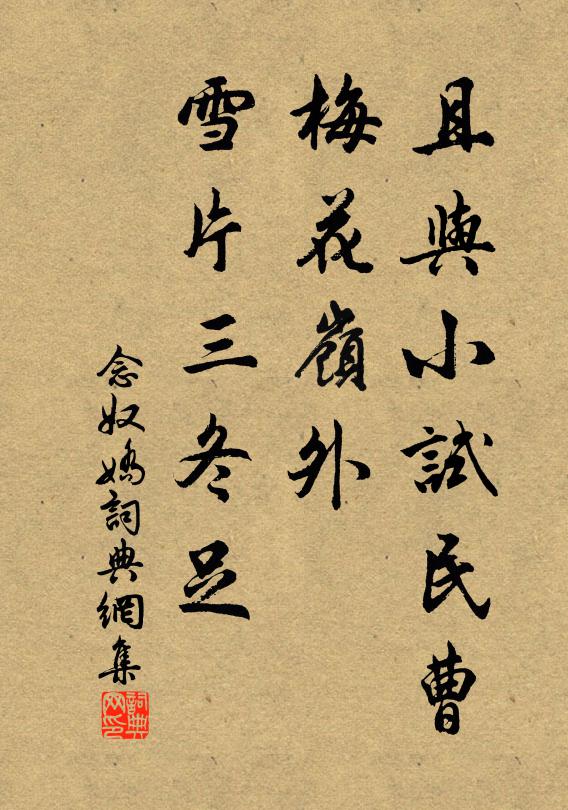 且與小試民曹
梅花嶺外
雪片三冬足
念奴嬌詞典網集
詞典
网印